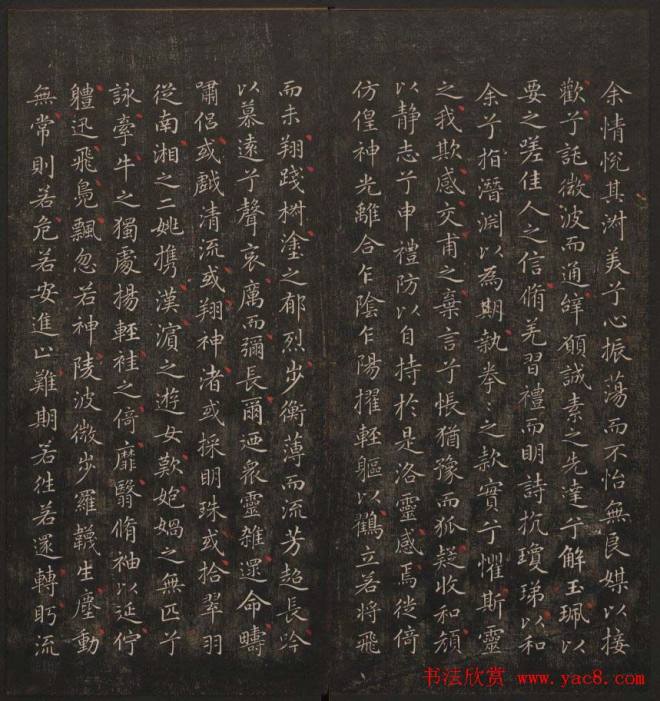 余情悅其淑美兮心振蕩而不怡無良媒以接
歡兮託微波而通辭願誠素之先達兮解玉珮以
要之嗟佳人之信脩羌習禮而明詩抗瓊珶以和
余兮指潛淵以為期執拳〻之款實兮懼斯靈
之我欺感交甫之棄言兮悵猶豫而狐疑收和顏
以静志兮申禮防以自持於是洛靈感焉徙倚
仿偟神光離合乍陰乍陽擢輕軀以鶴立若將飛
而未翔踐椒塗之郁烈步衡薄而流芳超長吟
以慕遠兮聲哀厲而彌長爾迺衆靈雜遝命疇
嘯侶或戲清流或翔神渚或採明珠或拾翠羽
從南湘之二姚攜漢濱之遊女歎匏媧之無匹兮
詠牽牛之獨處揚輕袿之倚靡翳脩袖以延佇
體迅飛鳧飄忽若神陵波微步羅韈生塵動
無常則若危若安進止難期若往若還轉眄流
书法欣赏 www.yac8.com